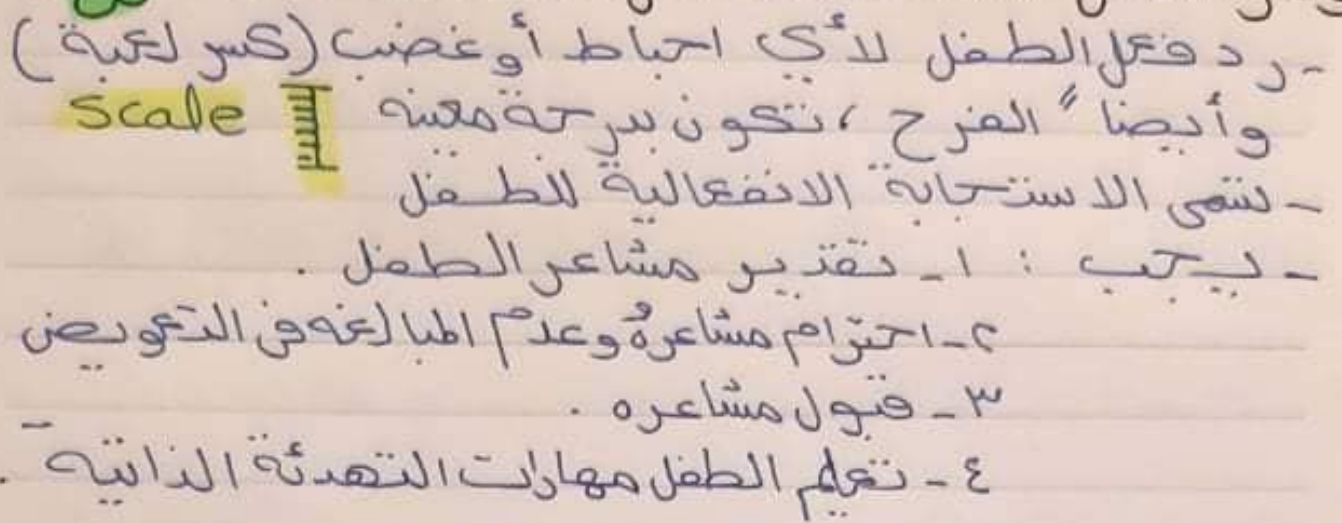 - رد فعل الطفل لأي احباط أو غضب (كسر لعبة)
وأيضاً الفرح ، تكون بدرجة معينه Scale
- تسمى الاستجابة الانفعالية للطفل
- يجب : ١- تقدير مشاعر الطفل .
٢- احترام مشاعرهُ وعدم المبالغه في التعويض
٣- قبول مشاعره .
٤- تعلم الطفل مهارات التهدئة الذاتية .